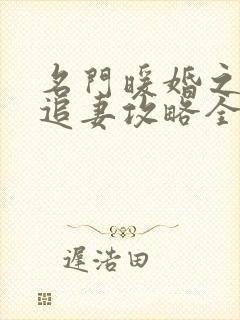 名門暖婚之
追妻攻略全
遲浩田